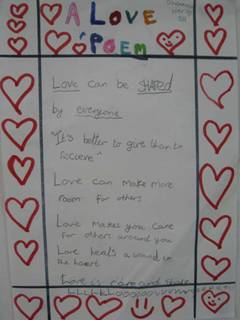 A LOVE
POEM
Love can be SHARED
by everyone
"It's better to give than to
recieve"
Love can make more
room for others
Love makes you care
for others around you
Love heals a wound in
the heart
Love is care and share